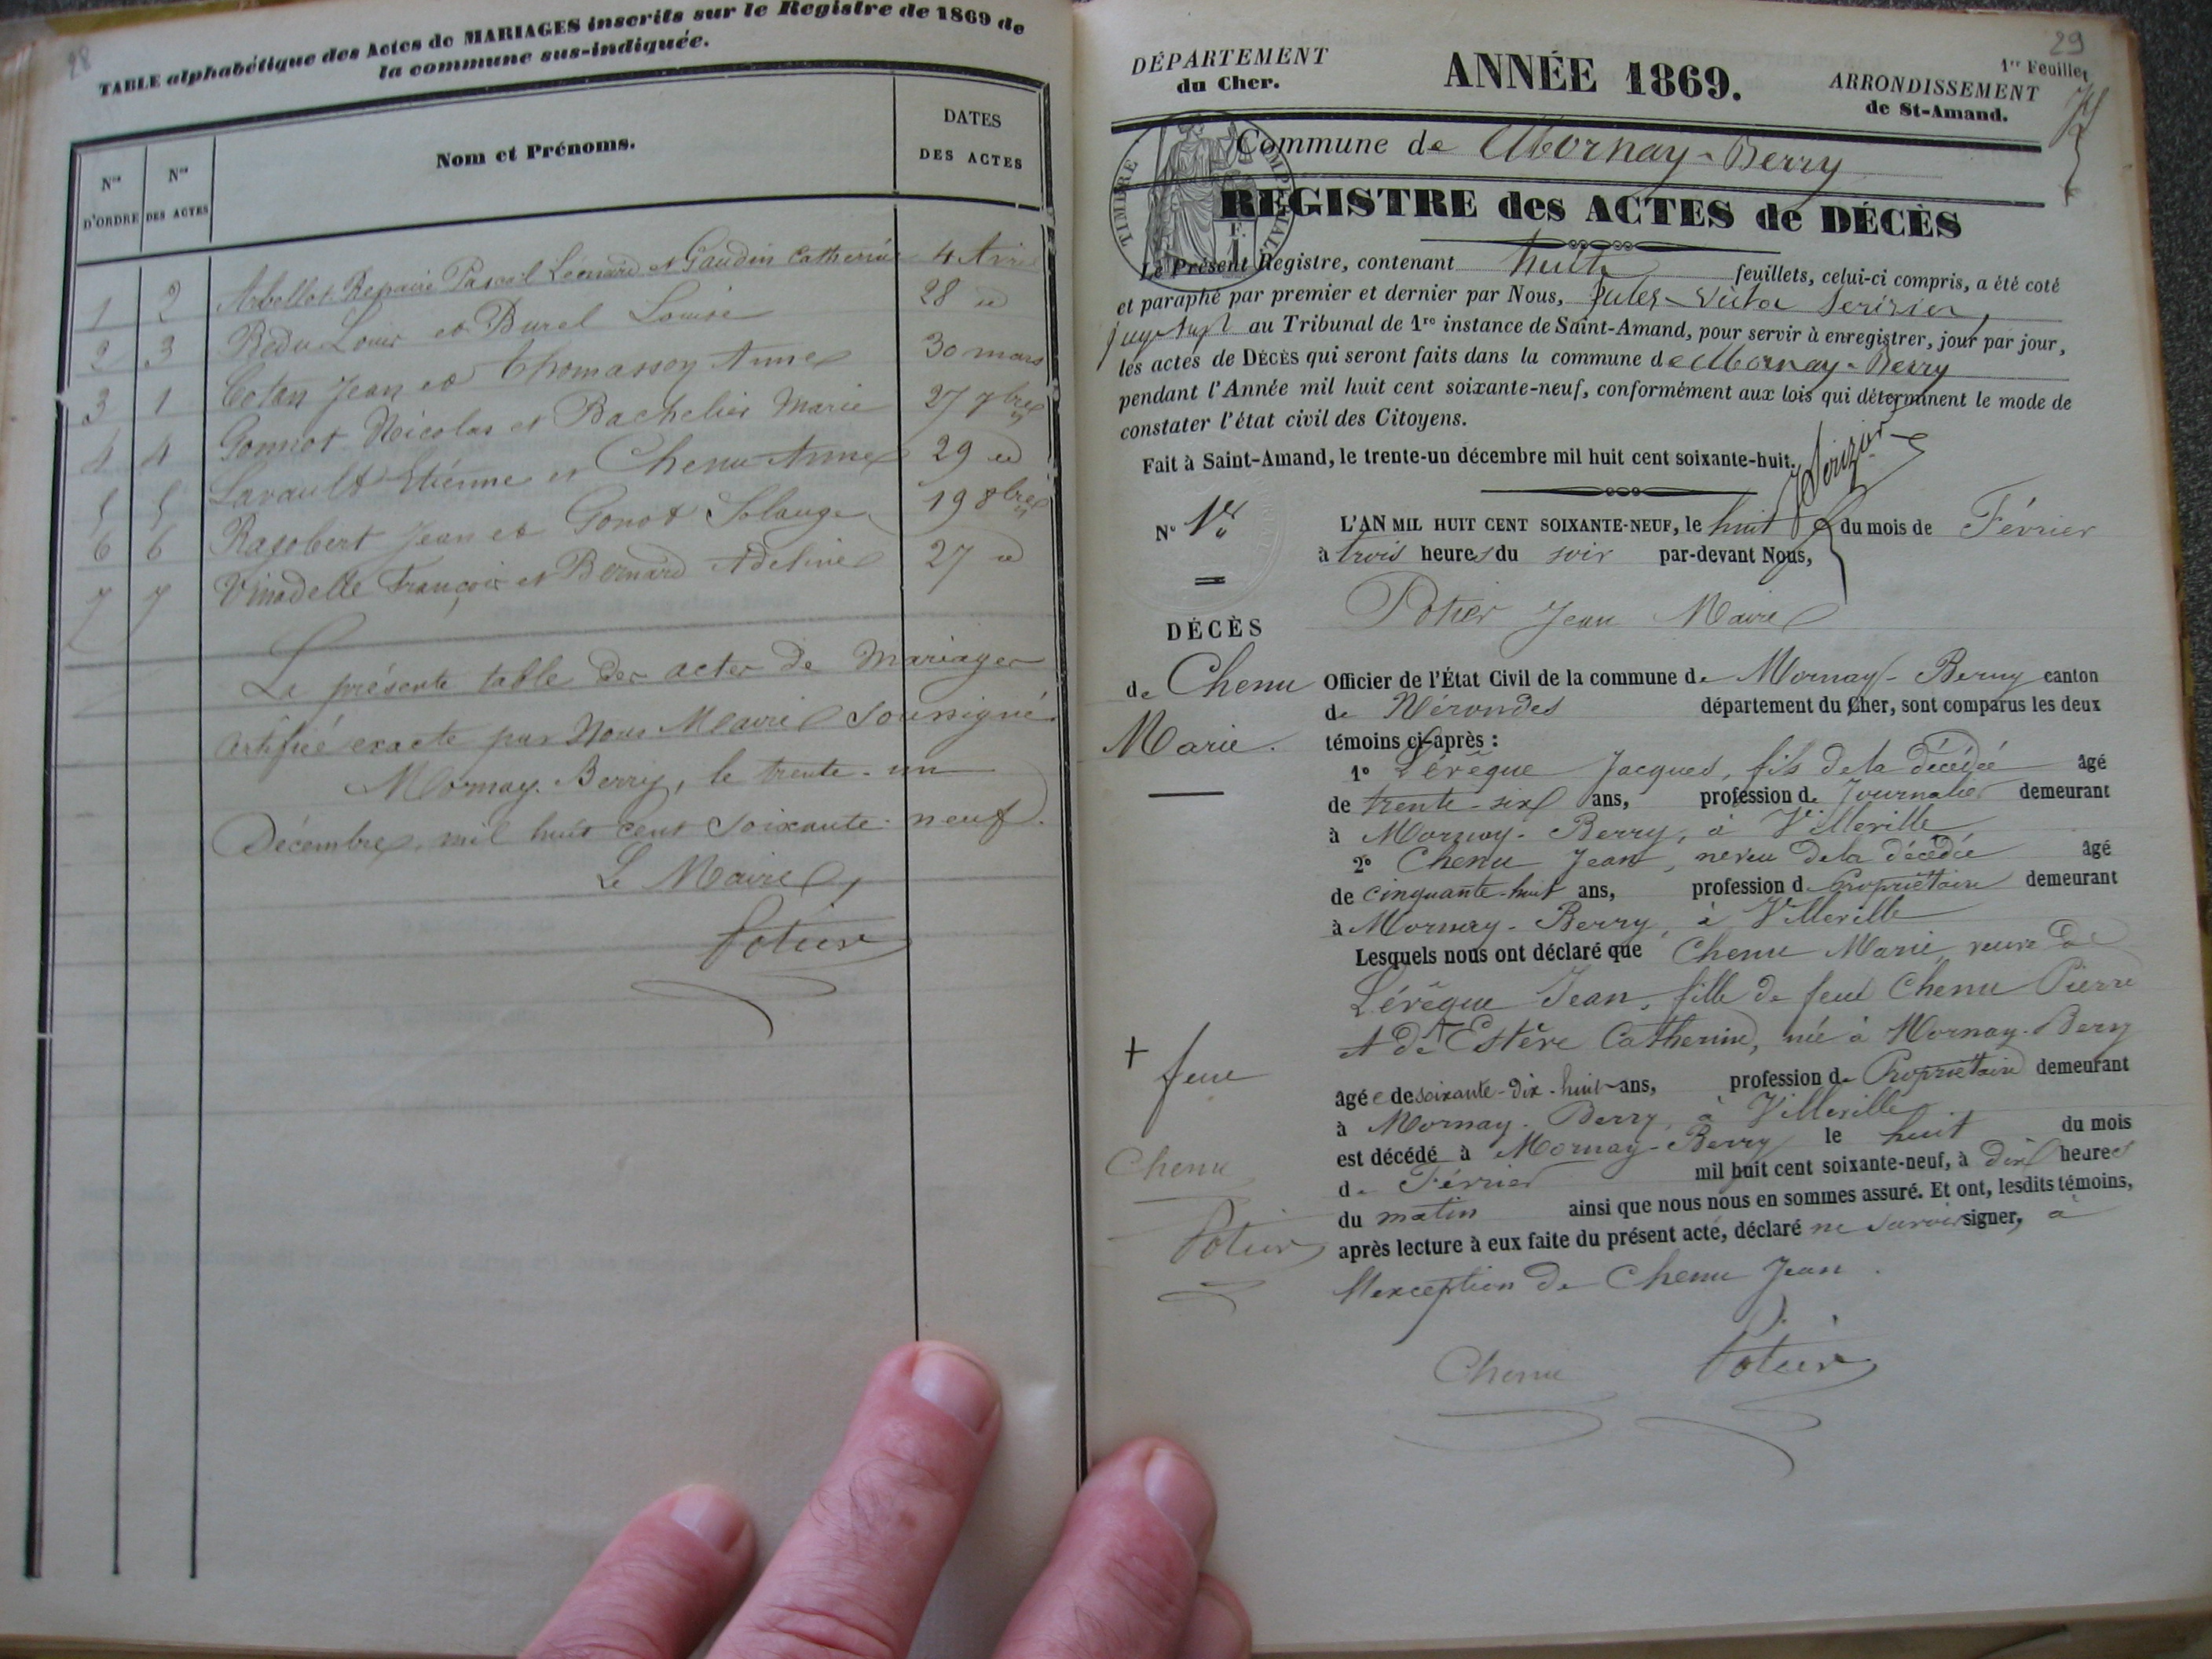 28
TABLE alphabétique des Actes de MARIAGES inscrits sur le Registre de 1869 de
la commune sus-indiquée.
Nos D'ORDRE
Nos DES ACTES
Nom et Prénoms.
DATES DES ACTES
1 2 Arbellot Repaire Pascal Léonard et Gaudin Catherine 4 Avril
2 3 Bedu Louis et Burel Louise 28 id
3 1 Cotan Jean et Thomasson Anne 30 mars
4 4 Gonnot Nicolas et Bachelier Marie 27 7bre
5 5 Lavault Etienne et Chenu Anne 29 id
6 6 Ragobert Jean et Gonot Solange 19 8bre
7 7 Vinadelle François et Bernard Adeline 27 id
La présente table des actes de Mariages
certifiée exacte par Nous Maire soussigné
Mornay-Berry, le trente-un
Décembre, mil huit cent soixante-neuf.
Le Maire,
Potier
29
1er Feuillet
DÉPARTEMENT
du Cher.
ANNÉE 1869.
ARRONDISSEMENT
de St-Amand.
TIMBRE IMPÉRIAL
Commune de Mornay-Berry
REGISTRE des ACTES de DÉCÈS
Le Présent Registre, contenant huit feuillets, celui-ci compris, a été coté
et paraphé par premier et dernier par Nous, Jules-Victor
juge supt au Tribunal de 1re instance de Saint-Amand, pour servir à enregistrer, jour par jour,
les actes de DÉCÈS qui seront faits dans la commune de Mornay-Berry
pendant l'Année mil huit cent soixante-neuf, conformément aux lois qui déterminent le mode de
constater l'état civil des Citoyens.
Fait à Saint-Amand, le trente-un décembre mil huit cent soixante-huit.
N° 1er
L'AN MIL HUIT CENT SOIXANTE-NEUF, le huit du mois de Février
à trois heures du soir par-devant Nous,
Potier Jean Maire
DÉCÈS
de Chenu
Marie.
Officier de l'État Civil de la commune de Mornay-Berry canton
de Nérondes département du Cher, sont comparus les deux
témoins ci-après :
1° Lévêque Jacques, fils de la décédée âgé
de trente-six ans, profession de Journalier demeurant
à Mornay-Berry, à Villeville
2° Chenu Jean, neveu de la décédée âgé
de cinquante-huit ans, profession de Propriétaire demeurant
à Mornay-Berry, à Villeville
Lesquels nous ont déclaré que Chenu Marie, veuve de
Lévêque Jean, fille de feu Chenu Pierre
et de + Estève Catherine, née à Mornay-Berry
âgée de soixante-dix-huit ans, profession de Propriétaire demeurant
à Mornay-Berry, à Villeville
est décédé à Mornay-Berry le huit du mois
de Février mil huit cent soixante-neuf, à dix heures
du matin ainsi que nous nous en sommes assuré. Et ont, lesdits témoins,
après lecture à eux faite du présent acte, déclaré ne savoir signer, à
l'exception de Chenu Jean.
+ feue
Chenu
Potier
Chenu Potier